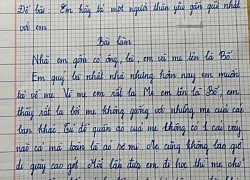 Đề bài: Em hãy tả một người thân yêu gần gũi nhất
với em
Bài làm
Nhà em gồm có ông, bà, em và mẹ tên là Bố
Em quý là nhất nhà nhưng hôm nay em muốn
tả về mẹ Vì mẹ em rất lạ Mẹ em tên là Bố, em
thấy rất lạ bởi mẹ không giống với những mẹ của các
bạn khác Tủ đồ quần áo của mẹ không có 1 cái váy
nào cả mà toàn là áo sơ mi Mẹ cũng không bao giờ
đi giày cao gót Mỗi lần đưa em đi học thì mẹ chỉ